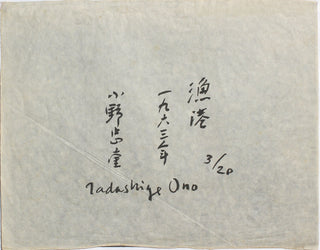 漁港
一九六三年
小野忠重
3/20
Tadashige Ono